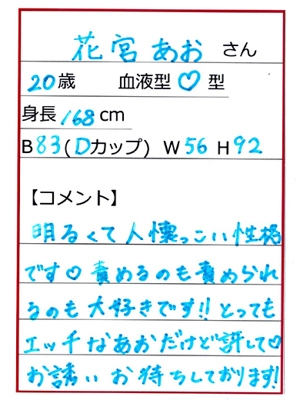 花宮あお さん
20歳 血液型♡型
身長168cm
B83(Dカップ) W56 H92
【コメント】
明るくて人懐っこい性格
です♡責めるのも責められ
るのも大好きです!!とっても
エッチなあおだけど許して♡
お誘いお待ちしております!